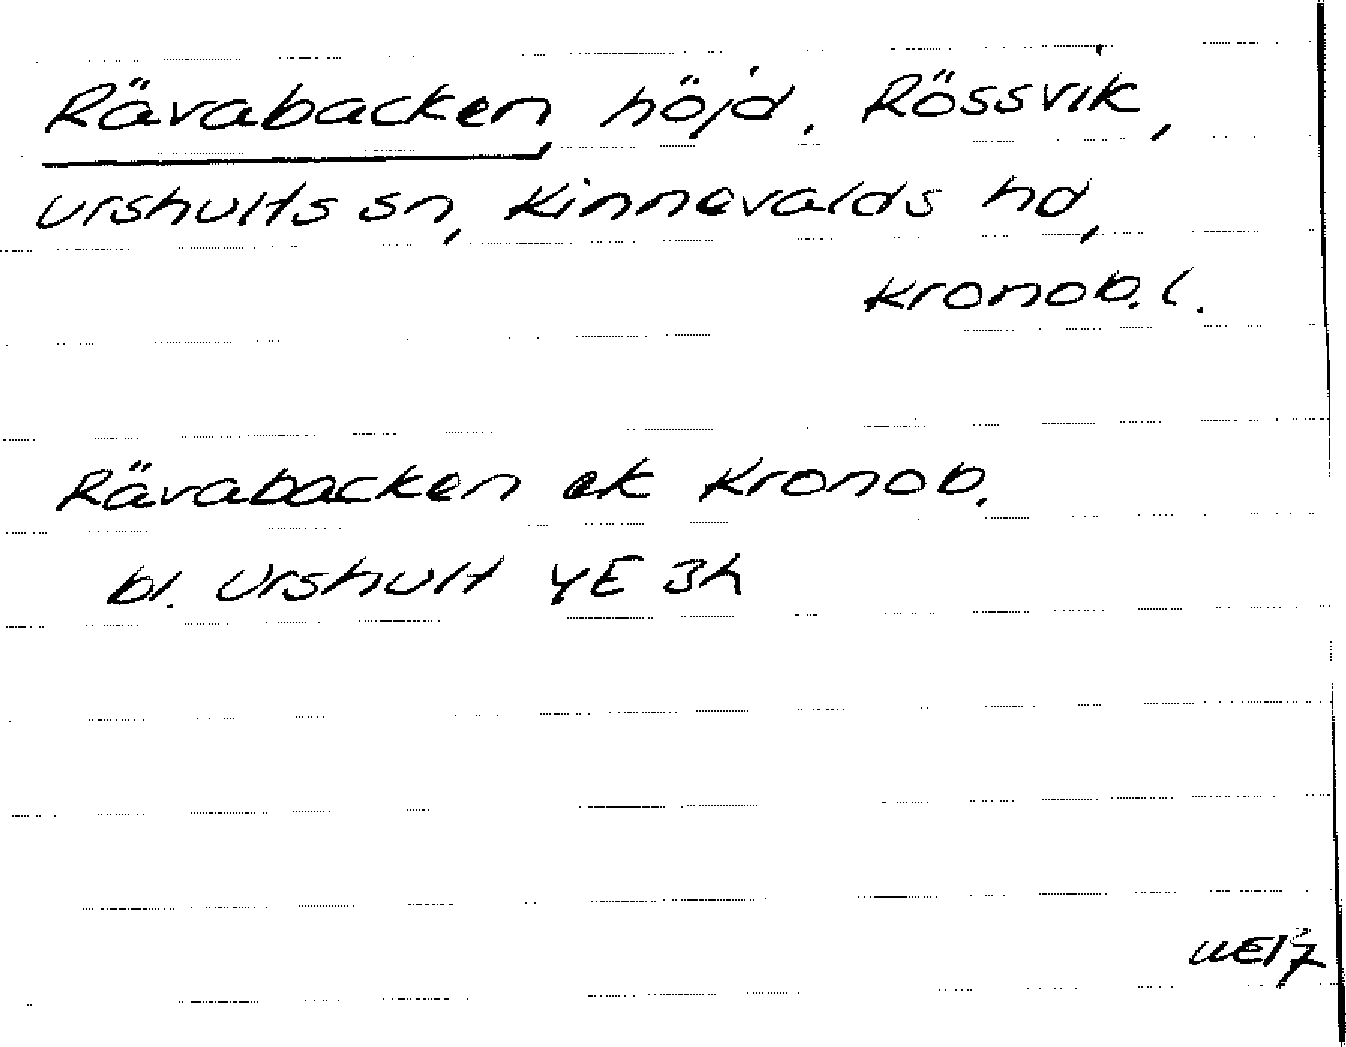 Rävabacken, höjd, Rössvik,
Urshults sn, Kinnevalds hd,
Kronob. l.
Rävabacken ek Kronob.
bl. Urshult 4E 3h